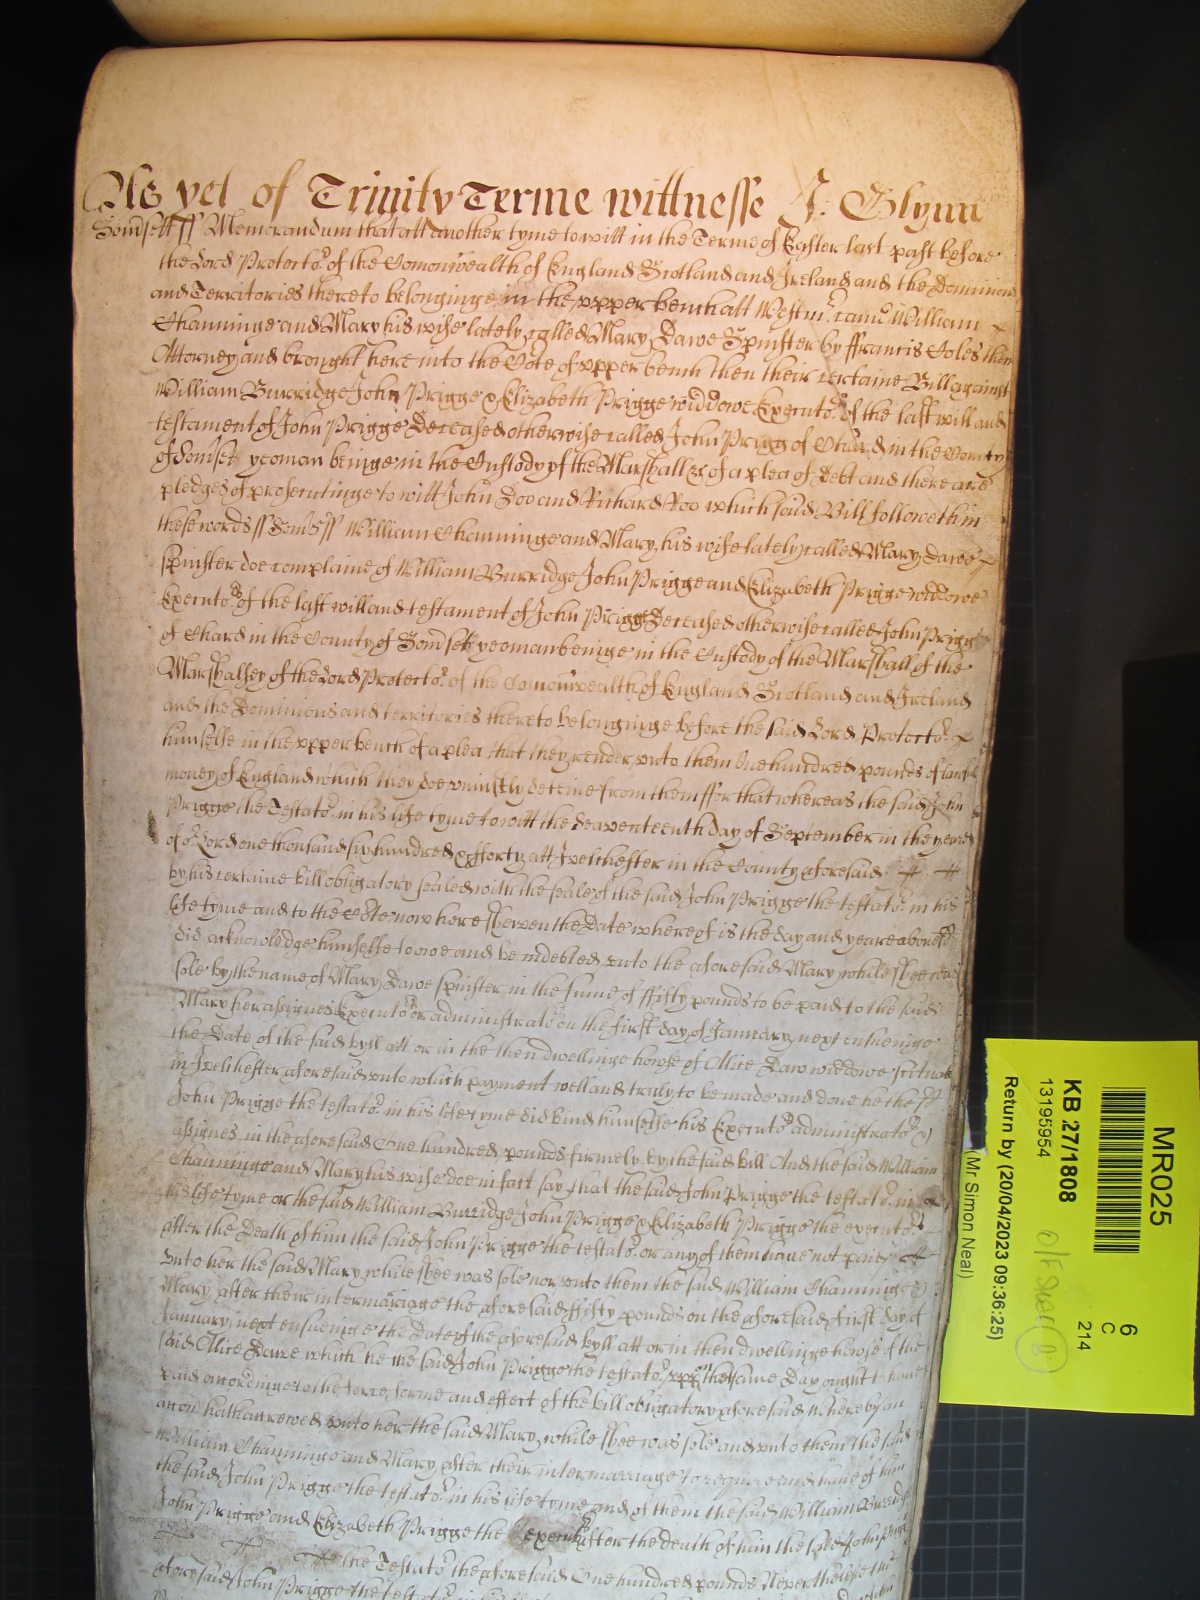 As yet of Trinity Terme wittnesse J: Glynn
Somsett ss Memorandum that att another tyme to witt in the Terme of Easter last past before
the Lord Protector of the Comonwealth of England Scotland and Ireland and the Dominions
and Territories thereto belonginge in the upper bench att Westmr came William
Channinge and Mary his wife lately called Mary Dawe Spinster by ffrancis Coles their
Attorney and brought here into the Cote of upper bench then their certaine Bill against
William Burridge John Prigge & Elizabeth Prigge widdowe Executors of the last will and
testament of John Prigge Deceased otherwise called John Prigg of Chard in the County
of Somset yeoman beinge in the Custody of the Marshall &c of a plea of Debt and there are
pledges of prosecutinge to witt John Doo and Richard Roo which said Bill followeth in
these words ss Somst ss William Channinge and Mary his wife lately called Mary Dawe
spinster doe complaine of William Burridge John Prigge and Elizabeth Prigge widdowe
Executors of the last will and testament of John Prigge Deceased otherwise called John Prigg
of Chard in the County of Somset yeoman beinge in the Custody of the Marshall of the
Marshallsey of the Lord Protector of the Comonwealth of England Scotland and Ireland
and the Dominions and territories thereto belonginge before the said Lord Protector
himselfe in the upper bench of a plea that they render unto them One hundred pounds of lawfull
money of England which they doe uniustly deteine from them ffor that whereas the said John
Prigge the Testator in his life tyme to witt the Seaventeenth day of September in the yeare
of or Lord one thousand six hundred & fforty att Ivelchester in the County aforesaid
by his certaine bill obligatory sealed with the seale of the said John Prigge the testator in his
life tyme and to the Cote now here shewen the Date whereof is the day and yeare abovesd
did acknowledge himselfe to owe and be indebted unto the aforesaid Mary whilst shee was
sole by the name of Mary Dawe spinster in the sume of ffifty pounds to be paid to the said
Mary her assignes Executors or administrators on the first day of January next ensueinge
the Date of the said byll att or in the then dwellinge howse of Allice Daw widdowe scituate
in Ivelchester aforesaid unto which payment well and truly to be made and done he the sd
John Prigge the testator in his life tyme did bind himselfe his Executors administrators &
assignes in the aforesaid One hundred pounds firmely by the said bill And the said William
Channinge and Mary his wife doe in fact say that the said John Prigge the testator in
his life tyme or the said William Burridge John Prigge & Elizabeth Prigge the executors
after the Death of him the said John Prigge the testator or any of them have not paid
unto her the said Mary while shee was sole nor unto them the said William Channinge &
Mary after their intermarriage the aforesaid ffifty pounds on the aforesaid first day of
January next ensueinge the Date of the aforesaid byll att or in then dwellinge howse of the
said Allice Dawe which he the said John Prigge the testator uppon the same Day ought to have
paid accordinge to the force forme and effect of the bill obligatory aforesaid Whereby an
accon hath accrewed unto her the said Mary while shee was sole and unto them the said
William Channinge and Mary after their intermarriage to require and have of him
the said John Prigge the testator in his life tyme and of them the said William Burridge
John Prigge and Elizabeth Prigge the executors after the death of him the said John Prigge
the Testator the aforesaid One hundred pounds Neverthelesse the
aforesaid John Prigge the testator in his
MR025
6
C
214
KB 27/1808
13195954
Return by (20/04/2023 09:36:25)
(Mr Simon Neal)